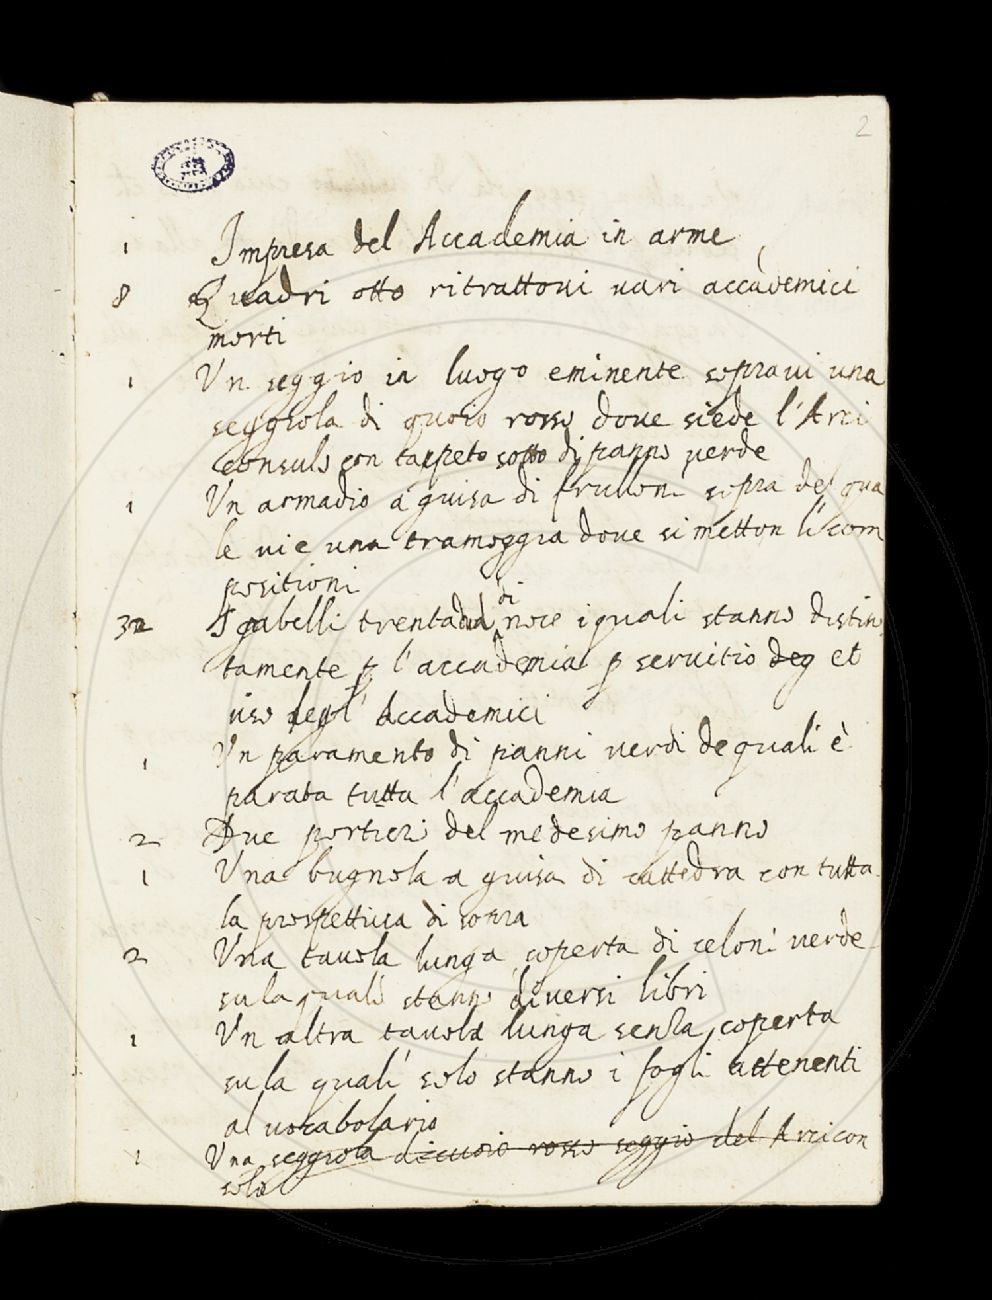 2
1 Impresa del Accademia in arme
8 Quadri otto ritrattoui uari accademici
morti
1 Un seggio in luogo eminente sopraui una
seggiola di quoio rosso doue siede l'Arci
consulo con tappeto sotto di panno uerde
1 Un armadio a guisa di frullon sopra del qua
le uie una tramoggia doue si metton li com
positioni
32 Sgabelli trentadua di noce i quali stanno distin
tamente p l'accademia p seruitio deg et
uso degl' Accademici
1 Un paramento di panni uerdi de quali è
parata tutta l'accademia
2 Due portieri del medesimo panno
1 Una bugnola a guisa di cattedra con tutta
la prospettiua di sopra
2 Una tauola lunga coperta di celoni uerde
su la quali stanno diuersi libri
1 Un altra tauola lunga senza coperta
su la quali solo stanno i fogli attenenti
al uocabolario
1 Una seggiola di cuoio rosso seggio del Arcicon
solo